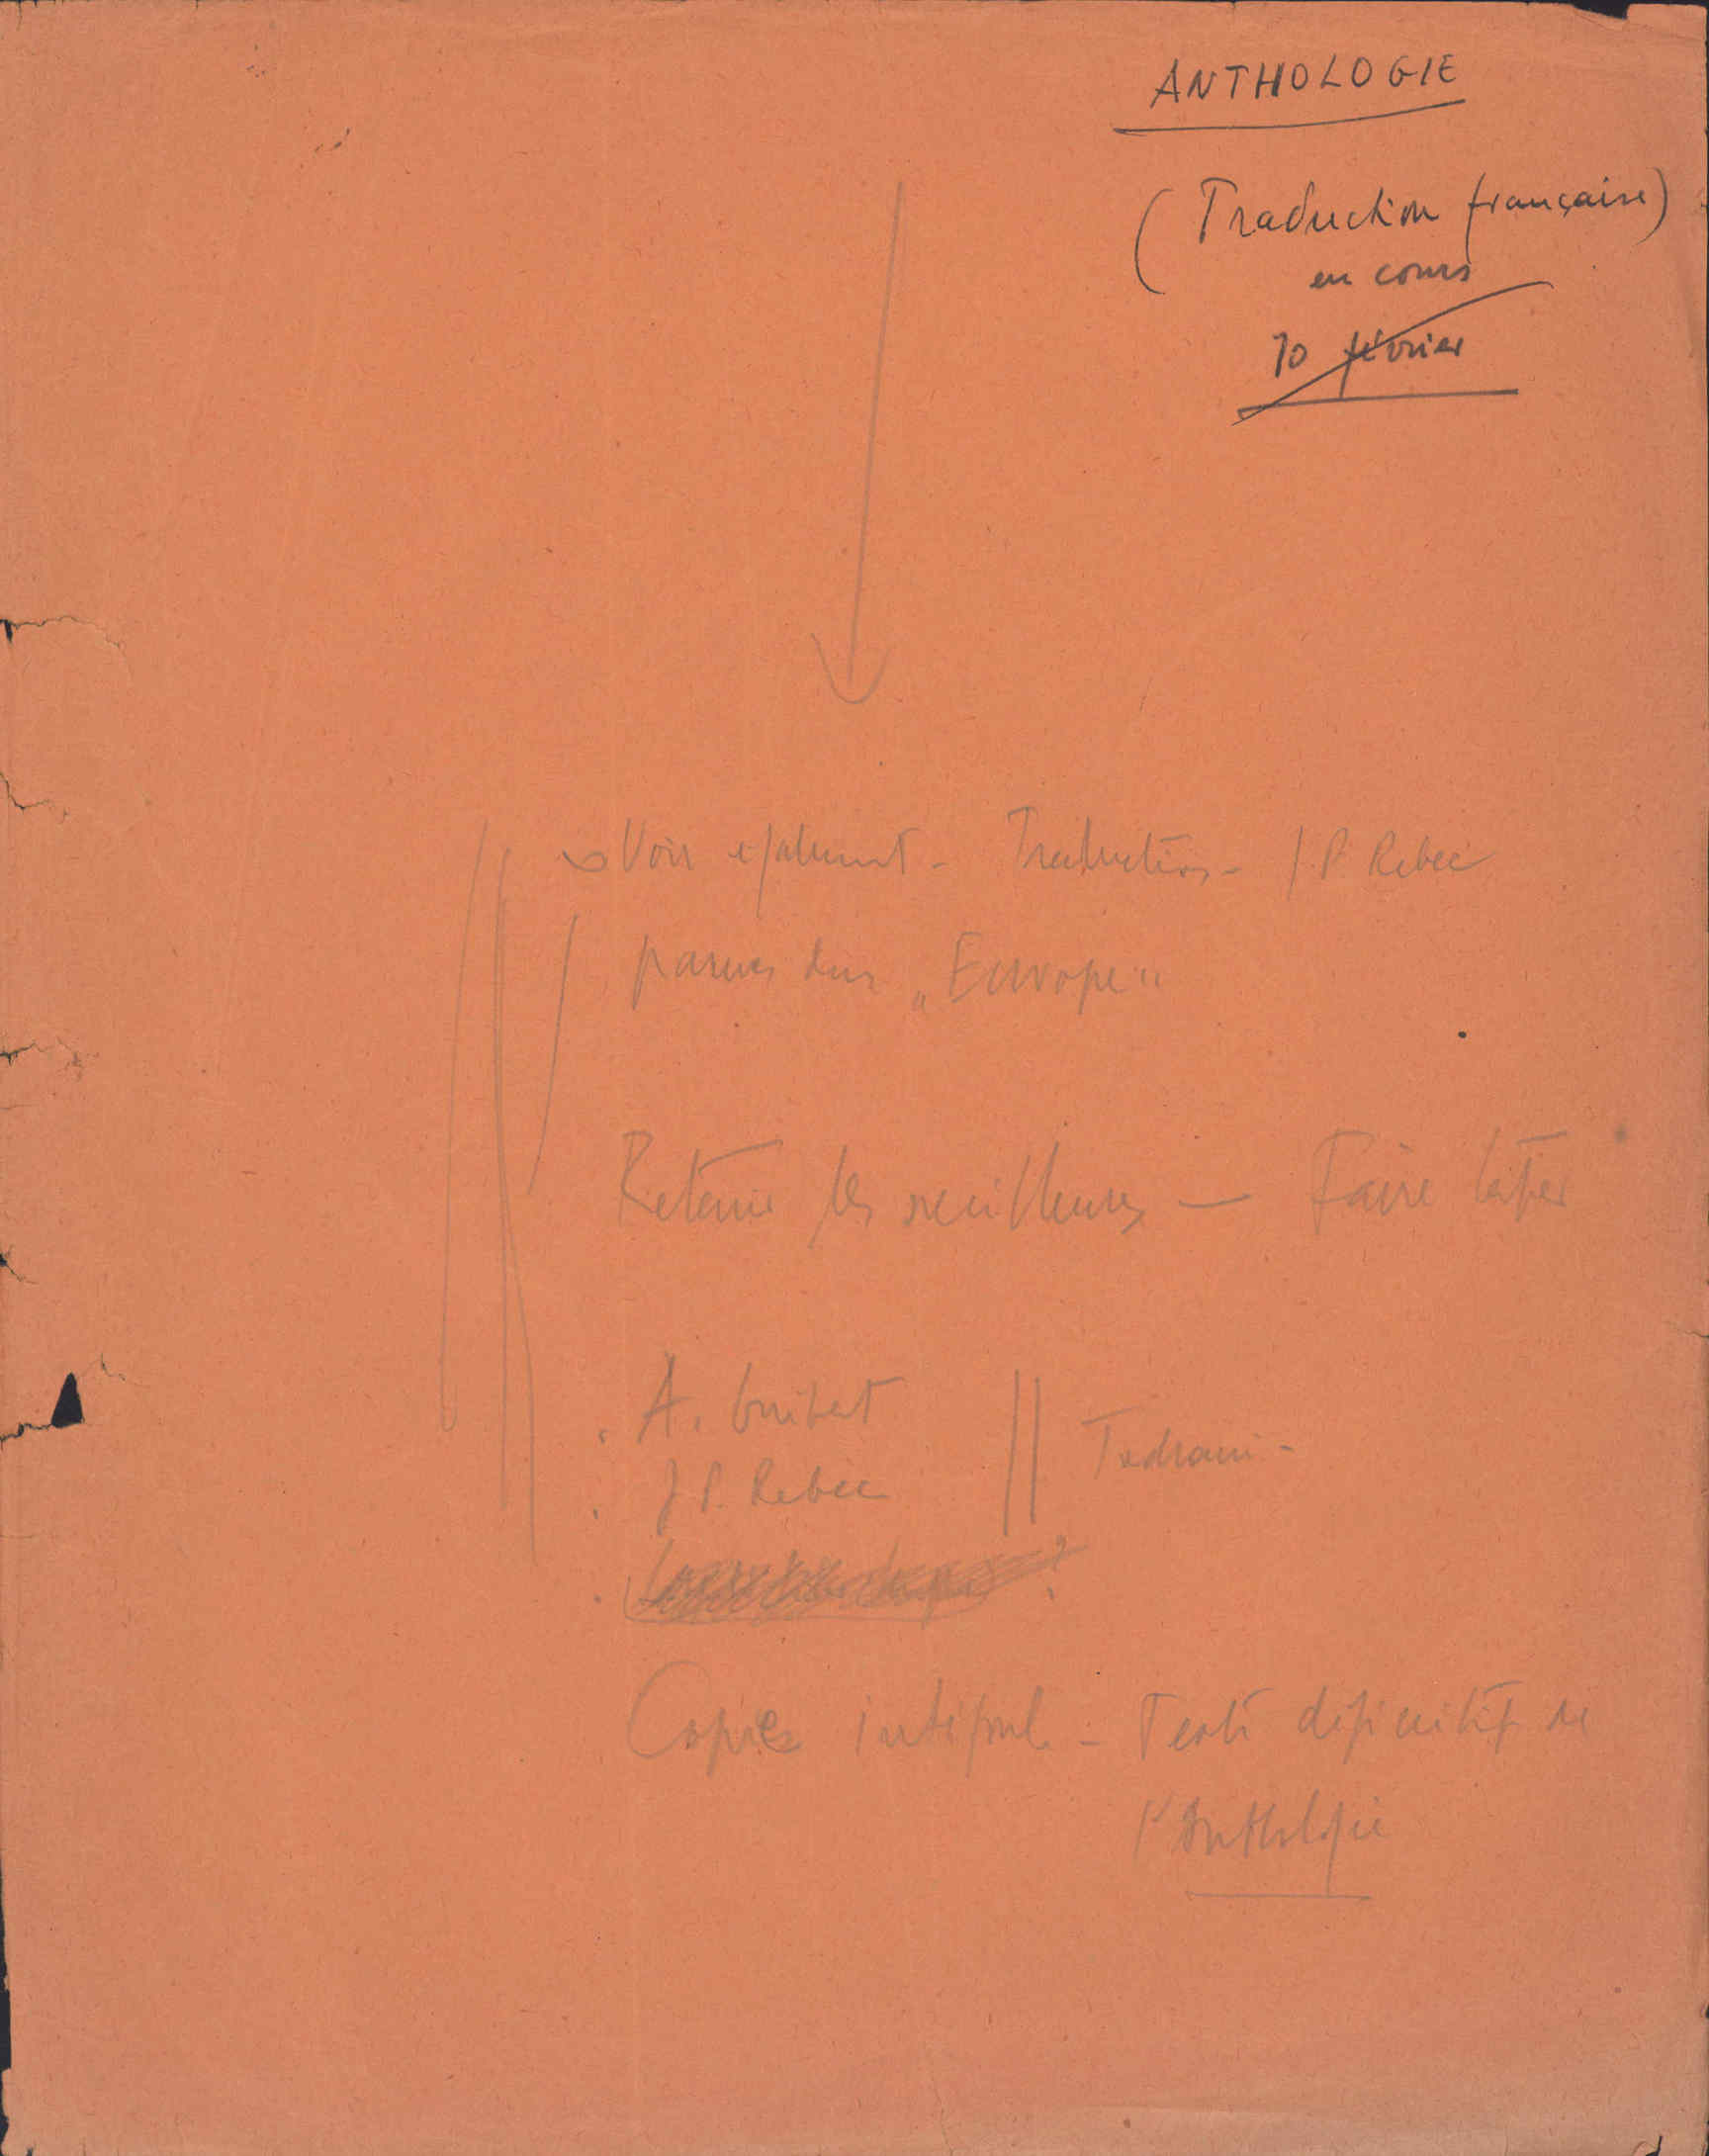 ANTHOLOGIE
(Traduction française)
en cours
10 février
Voir également - Traductions - J.P. Rebec
parues dans „Europe“
Retenir les meilleures — Faire taper
A. Guibert
J P. Rebec
Copie intégrale - Texte définitif de
l'Anthologie